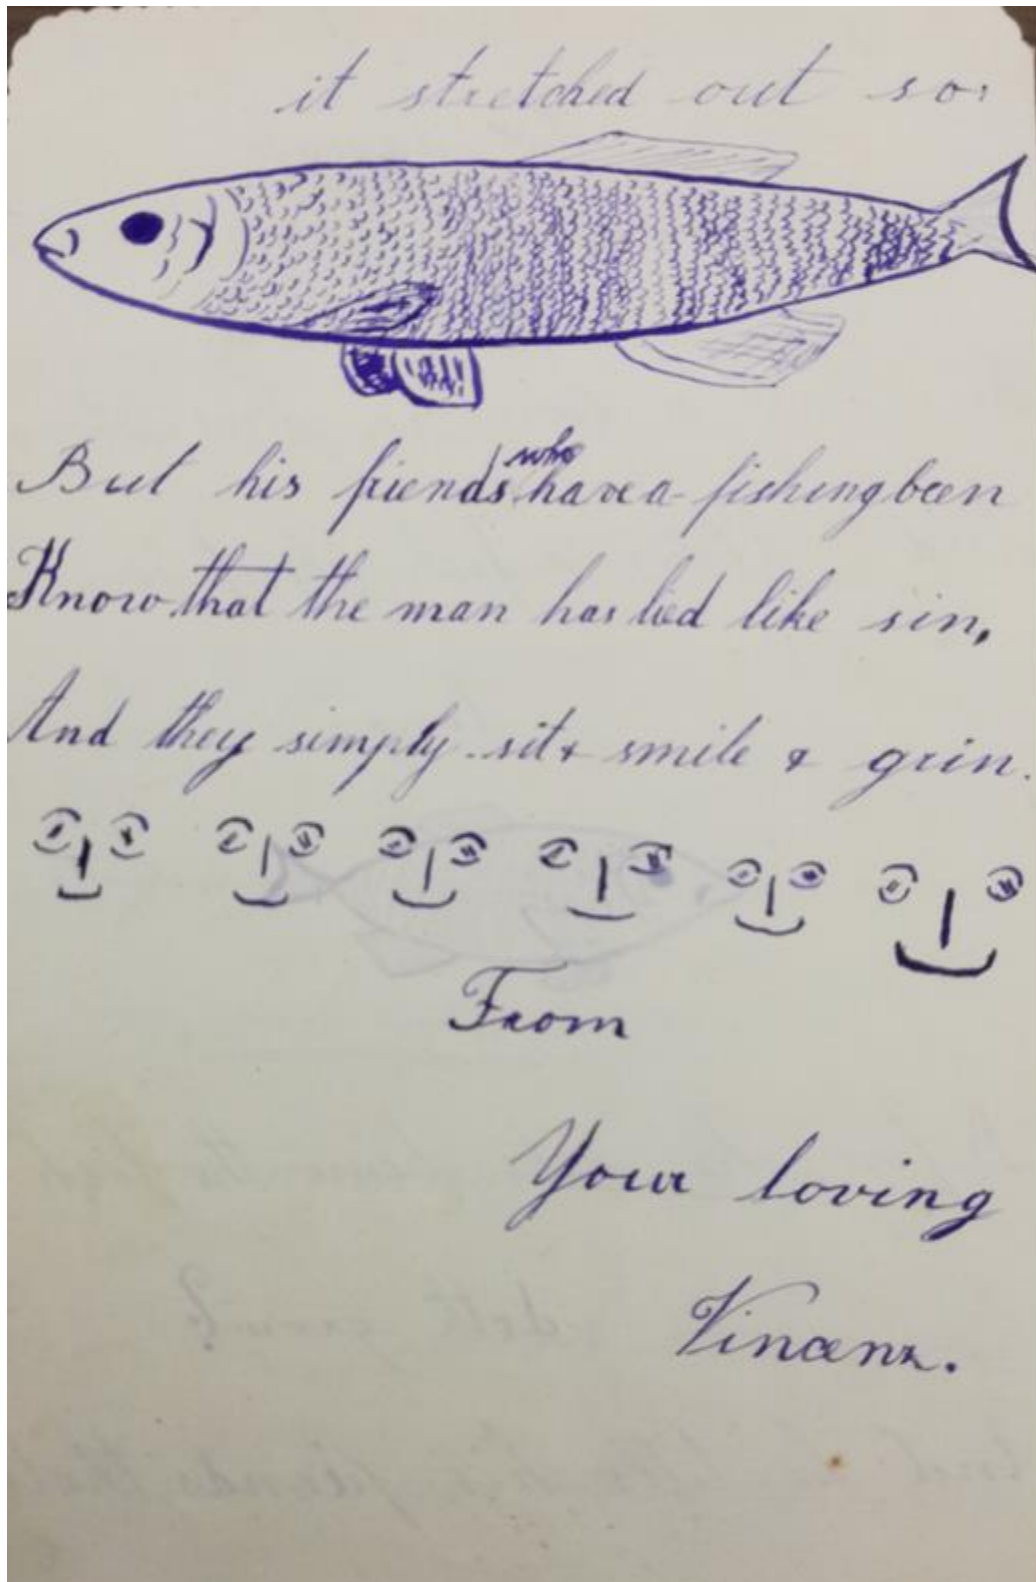 it stretched out so.
But his friends who have a-fishing been
Know that the man has lied like sin,
And they simply sit & smile & grin.
From
Your loving
Vincenz.